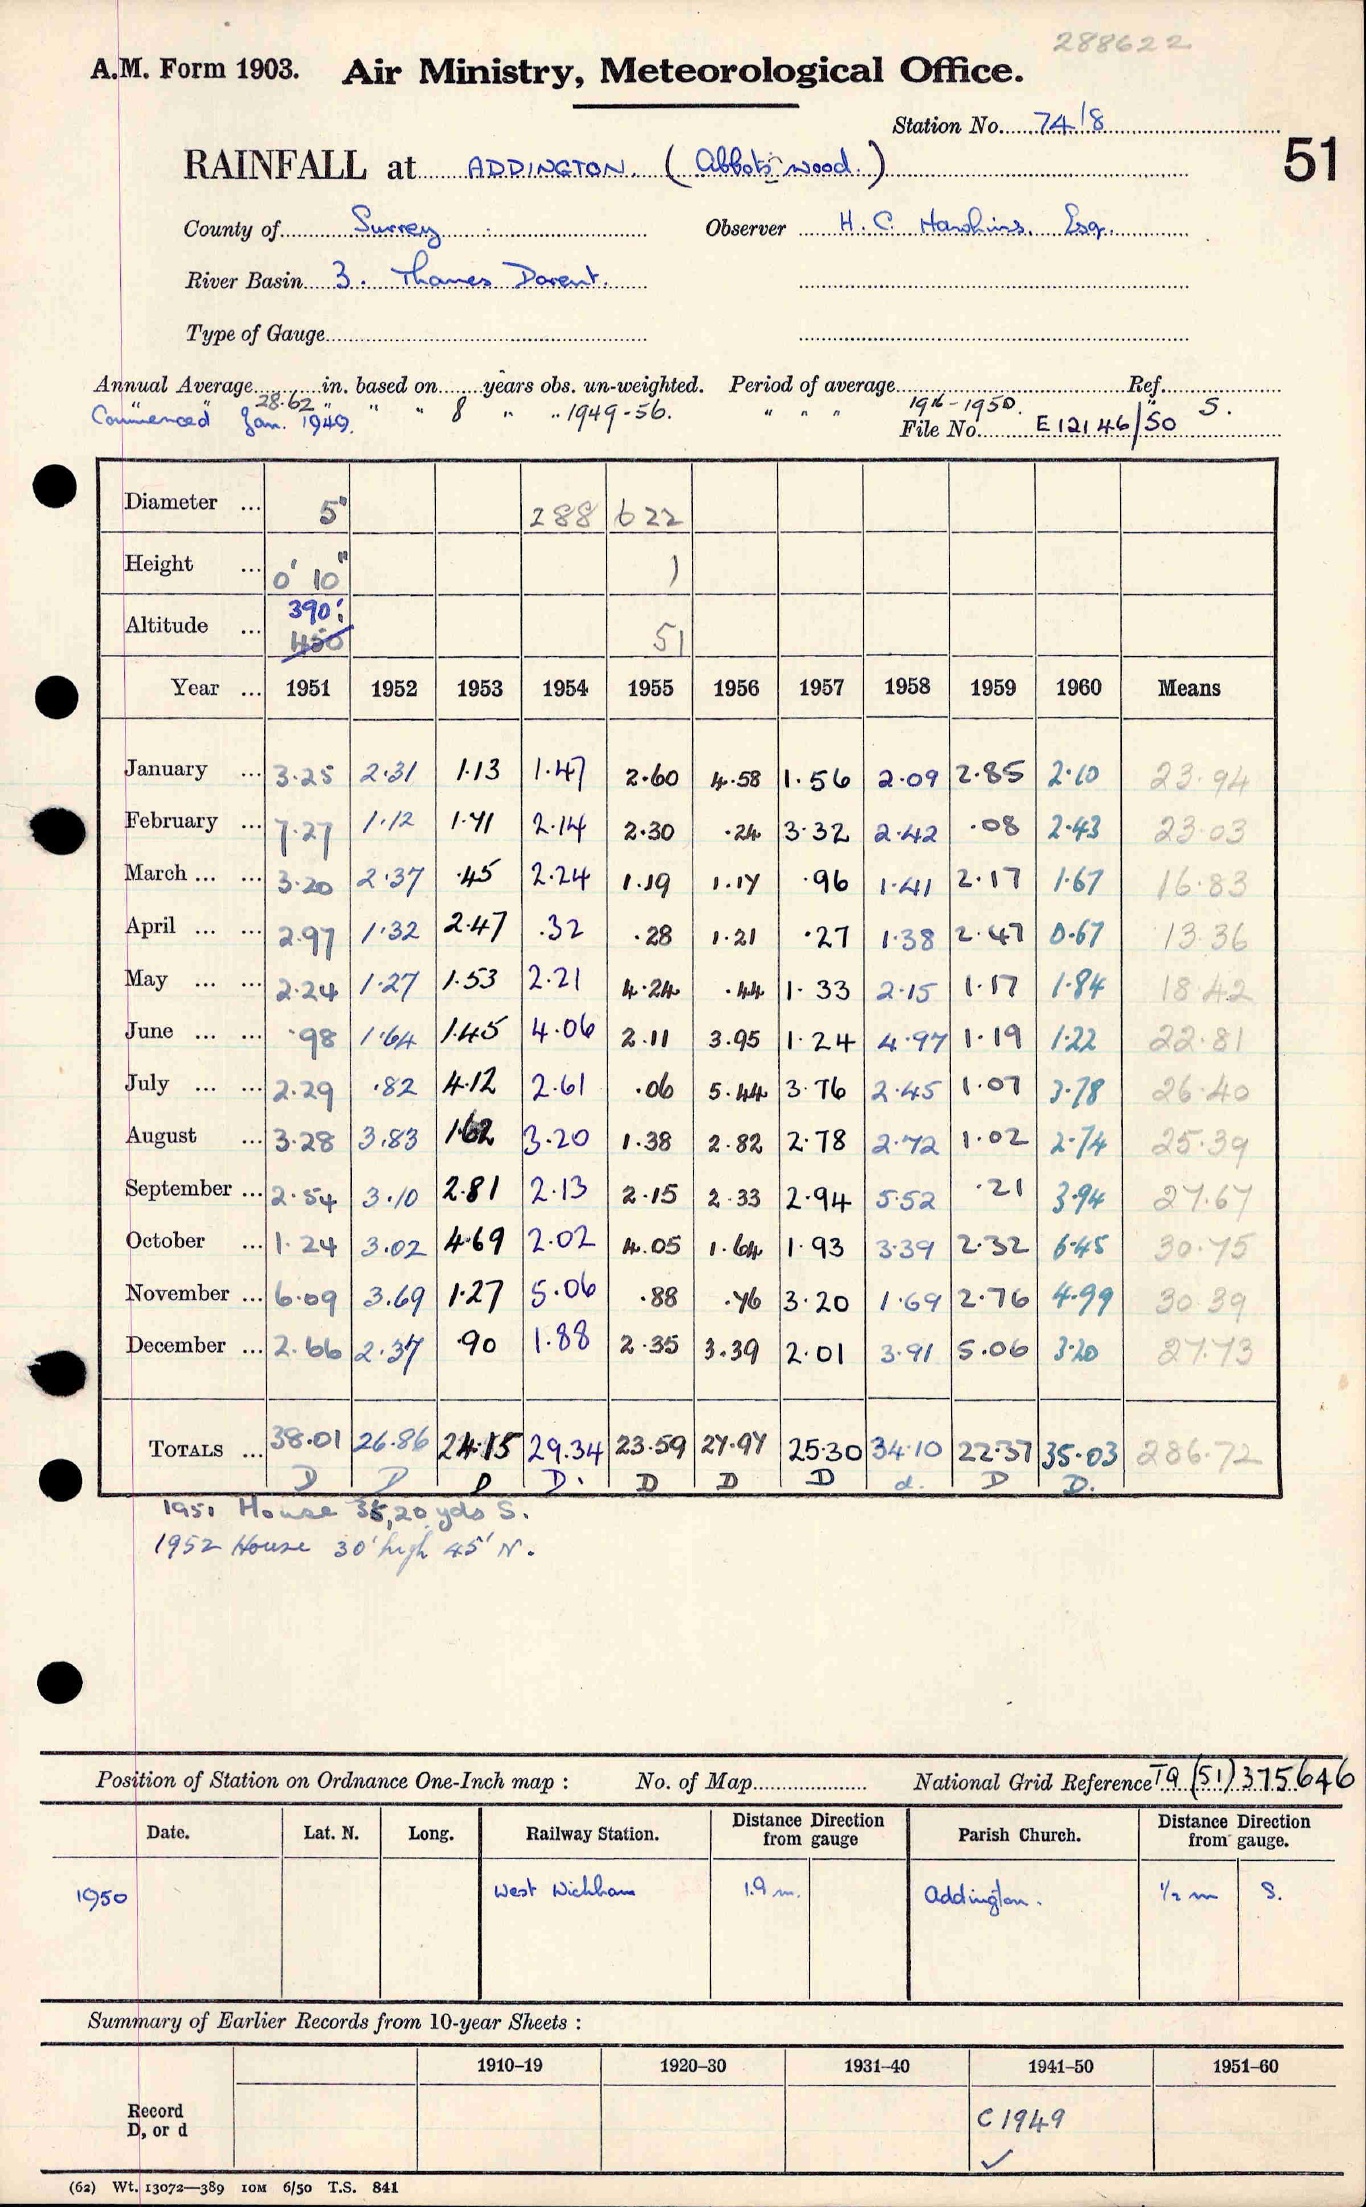 288622
A.M. Form 1903. Air Ministry, Meteorological Office.
Station No. 74/8
51
RAINFALL at ADDINGTON. (Abbots wood.)
County of Surrey Observer H. C. Hawkins. Esq.
River Basin 3. Thames Darent.
Type of Gauge
Annual Average in. based on years obs. un-weighted. Period of average Ref.
28.62 " " " 8 " " 1949-56. " " " 1916-1950. S.
Commenced Jan. 1949. File No. E12146/50
Diameter ... 5" 288 622
Height ... 0' 10" 1
Altitude ... 390' 450 51
Year ... 1951 1952 1953 1954 1955 1956 1957 1958 1959 1960 Means
January ... 3.25 2.31 1.13 1.47 2.60 4.58 1.56 2.09 2.85 2.10 23.94
February ... 7.27 1.12 1.71 2.14 2.30 .24 3.32 2.42 .08 2.43 23.03
March ... ... 3.20 2.37 .45 2.24 1.19 1.17 .96 1.41 2.17 1.67 16.83
April ... ... 2.97 1.32 2.47 .32 .28 1.21 .27 1.38 2.47 0.67 13.36
May ... ... 2.24 1.27 1.53 2.21 4.24 .44 1.33 2.15 1.17 1.84 18.42
June ... ... .98 1.64 1.45 4.06 2.11 3.95 1.24 4.97 1.19 1.22 22.81
July ... ... 2.29 .82 4.12 2.61 .06 5.44 3.76 2.45 1.07 3.78 26.40
August ... 3.28 3.83 1.62 3.20 1.38 2.82 2.78 2.72 1.02 2.74 25.39
September ... 2.54 3.10 2.81 2.13 2.15 2.33 2.94 5.52 .21 3.94 27.67
October ... 1.24 3.02 4.69 2.02 4.05 1.64 1.93 3.39 2.32 6.45 30.75
November ... 6.09 3.69 1.27 5.06 .88 .76 3.20 1.69 2.76 4.99 30.39
December ... 2.66 2.37 .90 1.88 2.35 3.39 2.01 3.91 5.06 3.20 27.73
TOTALS ... 38.01 26.86 24.15 29.34 23.59 27.97 25.30 34.10 22.37 35.03 286.72
D D D D. D D D d. D D.
1951 House 35, 20 yds S.
1952 House 30' high 45' N.
Position of Station on Ordnance One-Inch map : No. of Map National Grid Reference TQ (51) 375646
Date. Lat. N. Long. Railway Station. Distance Direction from gauge Parish Church. Distance Direction from gauge.
1950 West Wickham 1.9 m. Addington. 1/2 m S.
Summary of Earlier Records from 10-year Sheets :
1910–19 1920–30 1931–40 1941–50 1951–60
Record D, or d C 1949 ✓
(62) Wt. 13072—389 10M 6/50 T.S. 841